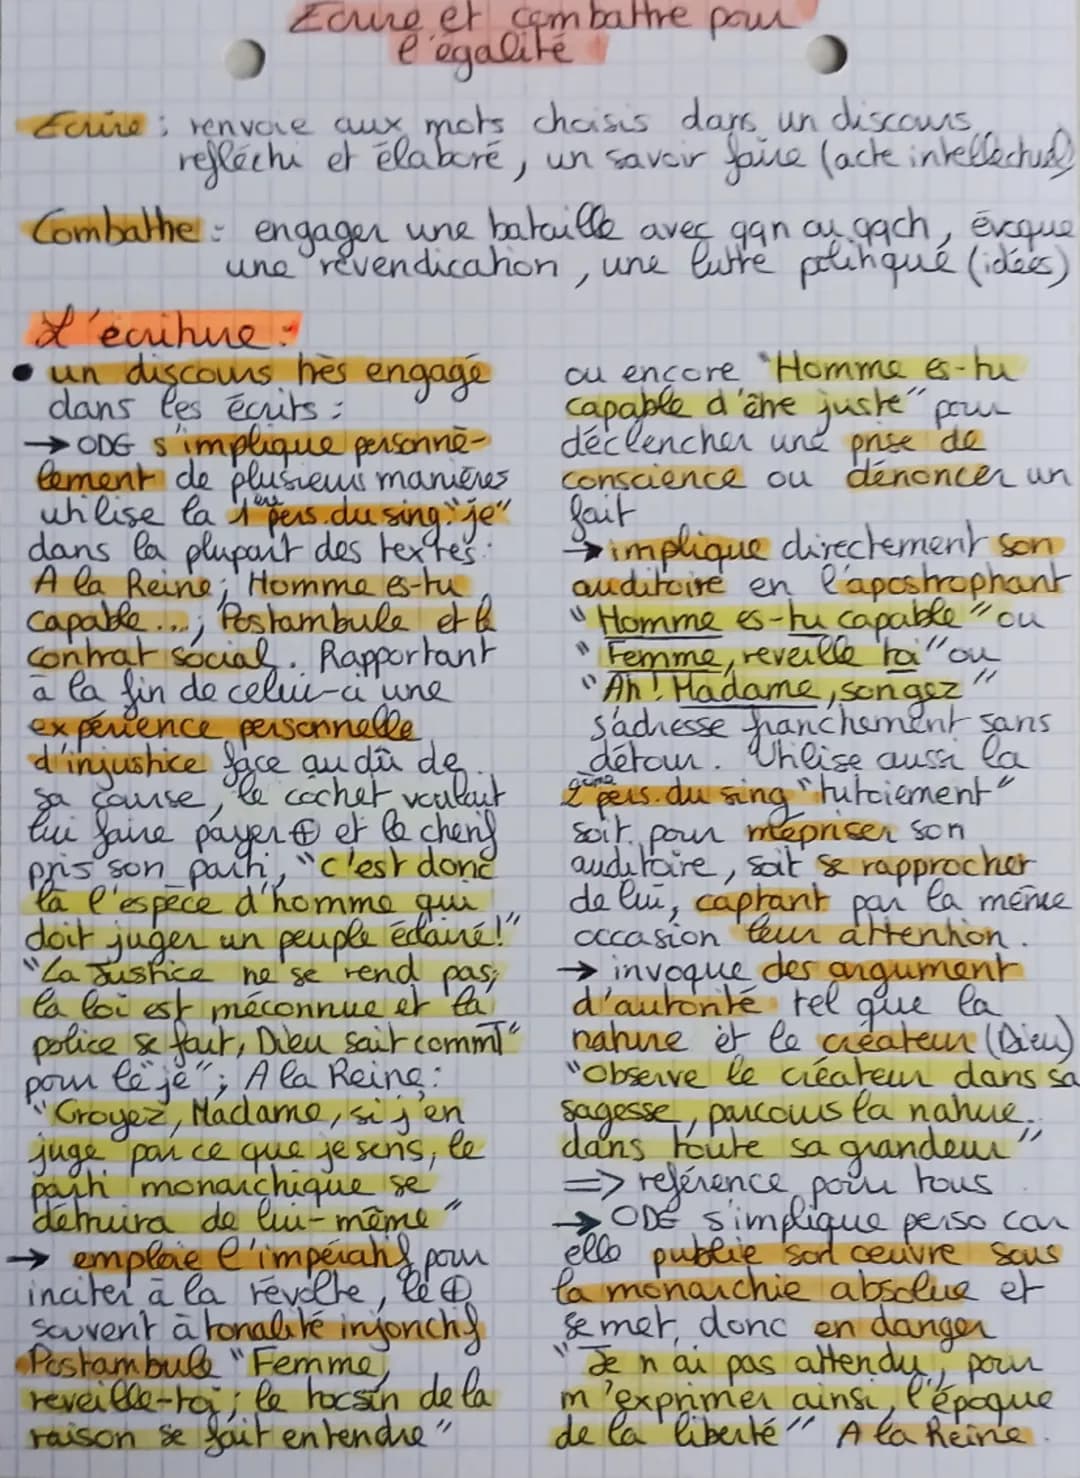 Ecrire et combattre pour
l'égalité
Ecrire : renvoie aux mots choisis dans un discours
réfléchi et élaboré, un savoir faire (acte intellectuel)
Combattre : engager une bataille avec qqn ou qqch, évoque
une revendication, une lutte politique (idées)
L'écriture :
• un discours très engagé
dans les écrits :
→ ODG s'implique personnel-
lement de plusieurs manières
utilise la 1ère pers. du sing. "je"
dans la plupart des textes :
A la Reine ; Homme es-tu
capable... ; Postambule et le
contrat social. Rapportant
à la fin de celui-ci une
expérience personnelle
d'injustice face au dû de
sa course, le cocher voulait
lui faire payer ⊕ et le cherif
pris son parti, "c'est donc
là l'espèce d'homme qui
doit juger un peuple éclairé !"
"La Justice ne se rend pas,
la loi est méconnue et la
police se fait, Dieu sait commT"
pour le "je" ; A la Reine :
"Croyez, Madame, si j'en
juge par ce que je sens, le
parti monarchique se
détruira de lui-même"
→ emploie l'impératif pour
inciter à la révolte, le ⊕
souvent à tonalité injonctif
Postambule "Femme,
reveille-toi ; le tocsin de la
raison se fait entendre"
ou encore "Homme es-tu
capable d'être juste" pour
déclencher une prise de
conscience ou dénoncer un
fait
→ implique directement son
auditoire en l'apostrophant
"Homme es-tu capable" ou
"Femme, reveille toi" ou
"Ah ! Madame, songez"
s'adresse franchement sans
détour. Utilise aussi la
2ème pers. du sing "tutoiement"
soit pour mépriser son
auditoire, soit se rapprocher
de lui, captant par la même
occasion leur attention.
→ invoque des argument
d'autorité tel que la
nature et le créateur (Dieu)
"Observe le créateur dans sa
sagesse, parcours la nature
dans toute sa grandeur"
=> référence pour tous
→ ODG s'implique perso car
elle publie son œuvre sous
la monarchie absolue et
se met donc en danger
"Je n'ai pas attendu, pour
m'exprimer ainsi, l'époque
de la liberté" A la Reine.